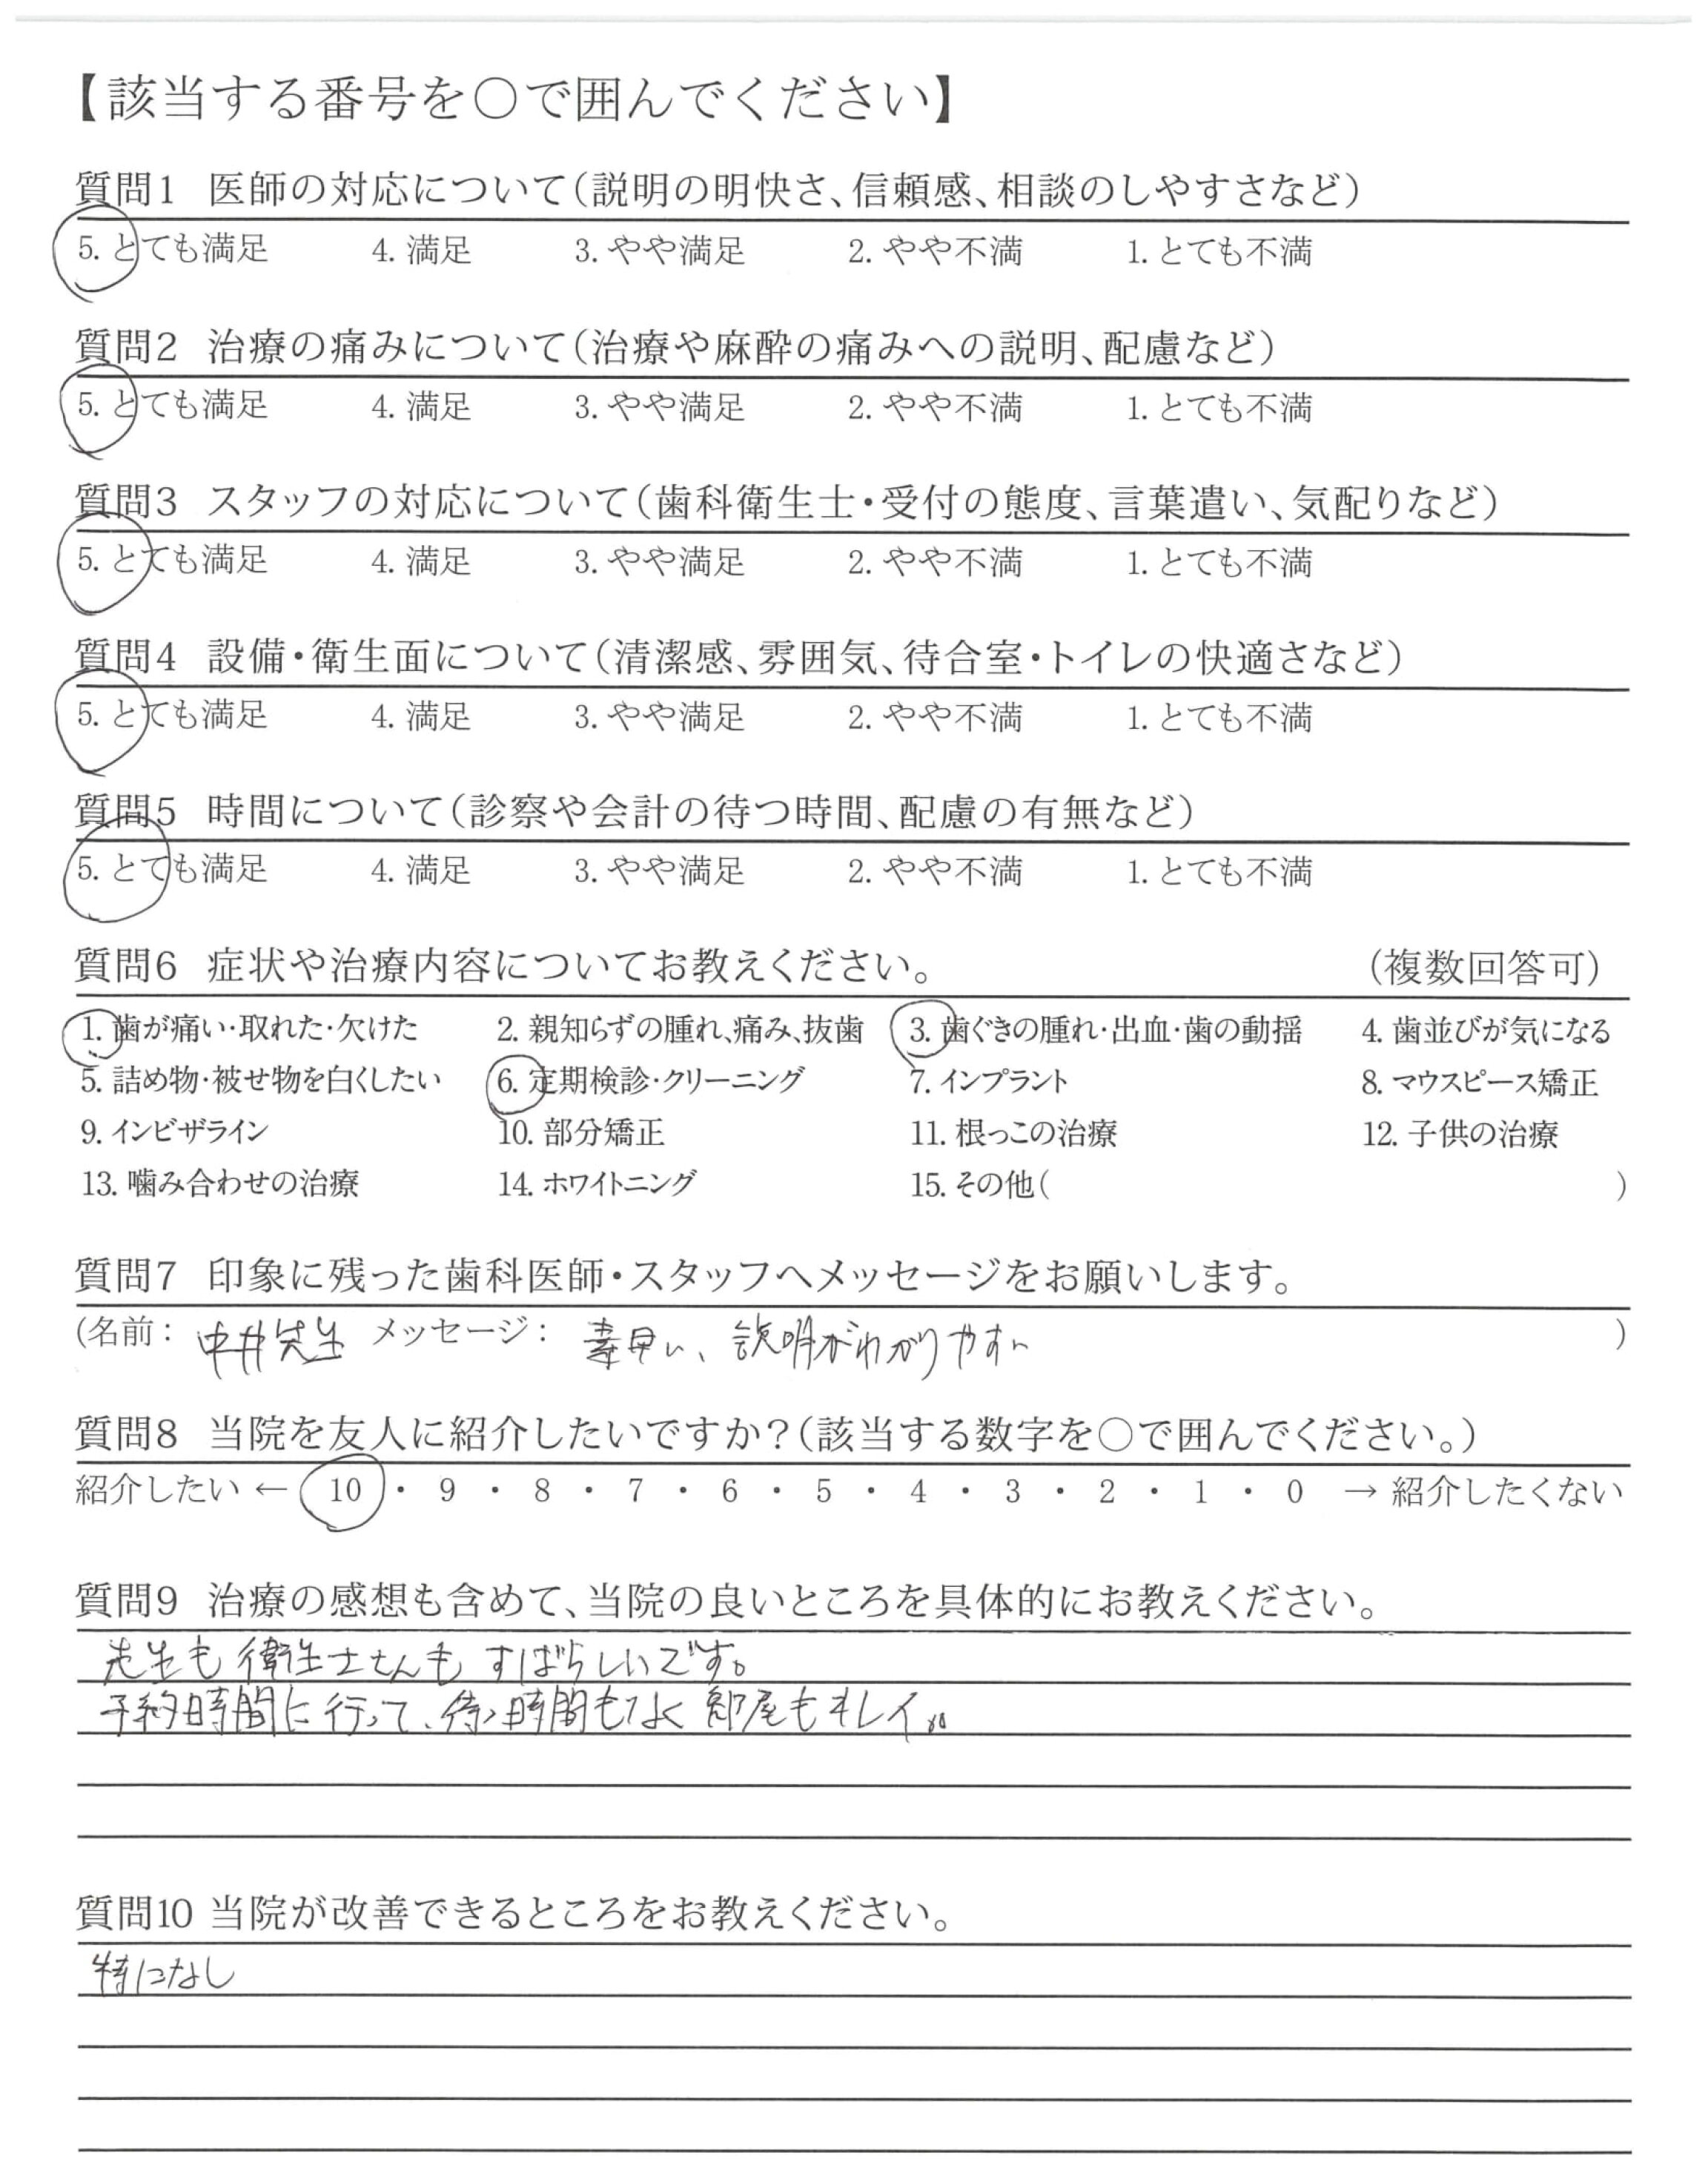 【該当する番号を○で囲んでください】
質問1 医師の対応について（説明の明快さ、信頼感、相談のしやすさなど）
5. とても満足 4. 満足 3. やや満足 2. やや不満 1. とても不満
質問2 治療の痛みについて（治療や麻酔の痛みへの説明、配慮など）
5. とても満足 4. 満足 3. やや満足 2. やや不満 1. とても不満
質問3 スタッフの対応について（歯科衛生士・受付の態度、言葉遣い、気配りなど）
5. とても満足 4. 満足 3. やや満足 2. やや不満 1. とても不満
質問4 設備・衛生面について（清潔感、雰囲気、待合室・トイレの快適さなど）
5. とても満足 4. 満足 3. やや満足 2. やや不満 1. とても不満
質問5 時間について（診察や会計の待つ時間、配慮の有無など）
5. とても満足 4. 満足 3. やや満足 2. やや不満 1. とても不満
質問6 症状や治療内容についてお教えください。 （複数回答可）
1. 歯が痛い・取れた・欠けた 2. 親知らずの腫れ、痛み、抜歯 3. 歯ぐきの腫れ・出血・歯の動揺 4. 歯並びが気になる
5. 詰め物・被せ物を白くしたい 6. 定期検診・クリーニング 7. インプラント 8. マウスピース矯正
9. インビザライン 10. 部分矯正 11. 根っこの治療 12. 子供の治療
13. 噛み合わせの治療 14. ホワイトニング 15. その他（ ）
質問7 印象に残った歯科医師・スタッフへメッセージをお願いします。
（名前： 中井先生 メッセージ： 素早い、説明がわかりやすい ）
質問8 当院を友人に紹介したいですか？（該当する数字を○で囲んでください。）
紹介したい ← 10 ・ 9 ・ 8 ・ 7 ・ 6 ・ 5 ・ 4 ・ 3 ・ 2 ・ 1 ・ 0 → 紹介したくない
質問9 治療の感想も含めて、当院の良いところを具体的にお教えください。
先生も衛生士さんもすばらしいです。
予約時間に行って、待つ時間もなく部屋もキレイ。
質問10 当院が改善できるところをお教えください。
特になし